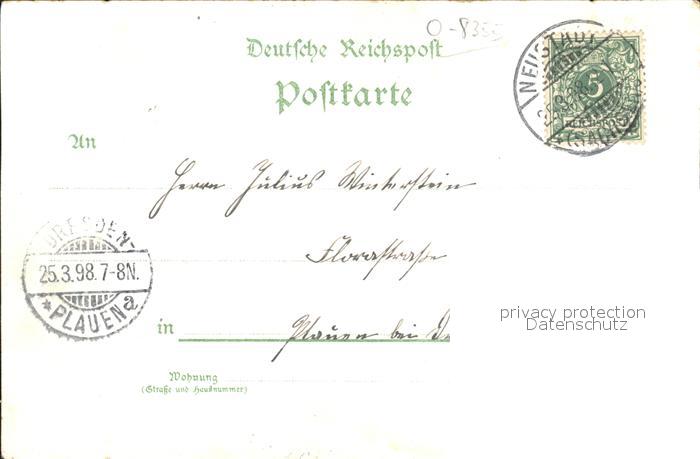 O-8355
Deutsche Reichspost
Postkarte
NEUSTADT
(SACHSEN)
5
An
Herrn Julius Winterstein
Florastraße
DRESDEN-
25.3.98.7-8N.
* PLAUEN a
in Plauen bei D
privacy protection
Datenschutz
Wohnung
(Straße und Hausnummer)